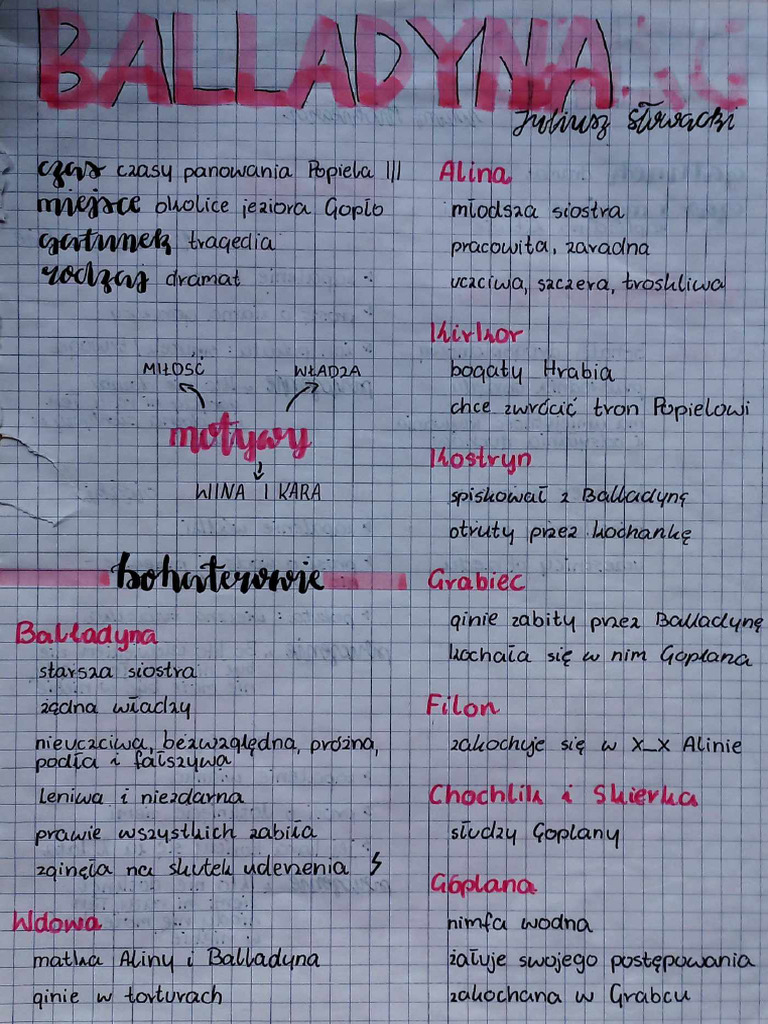 BALLADYNA
Juliusz Słowacki
czas czasy panowania Popiela III
miejsce okolice jeziora Gopło
gatunek tragedia
rodzaj dramat
MIŁOŚĆ
WŁADZA
motywy
WINA I KARA
bohaterowie
Balladyna
starsza siostra
żądna władzy
nieuczciwa, bezwzględna, próżna,
podła i fałszywa
leniwa i niezdarna
prawie wszystkich zabiła
zginęła na skutek uderzenia
Wdowa
matka Aliny i Balladyna
ginie w torturach
Alina
młodsza siostra
pracowita, zaradna
uczciwa, szczera, troskliwa
Kirkor
bogaty Hrabia
chce zwrócić tron Popielowi
Kostryn
spiskował z Balladyną
otruty przez kochankę
Grabiec
ginie zabity przez Balladynę
kochała się w nim Goplana
Filon
zakochuje się w X_X Alinie
Chochlik i Skierka
słudzy Goplany
Goplana
nimfa wodna
żałuje swojego postępowania
zakochana w Grabcu